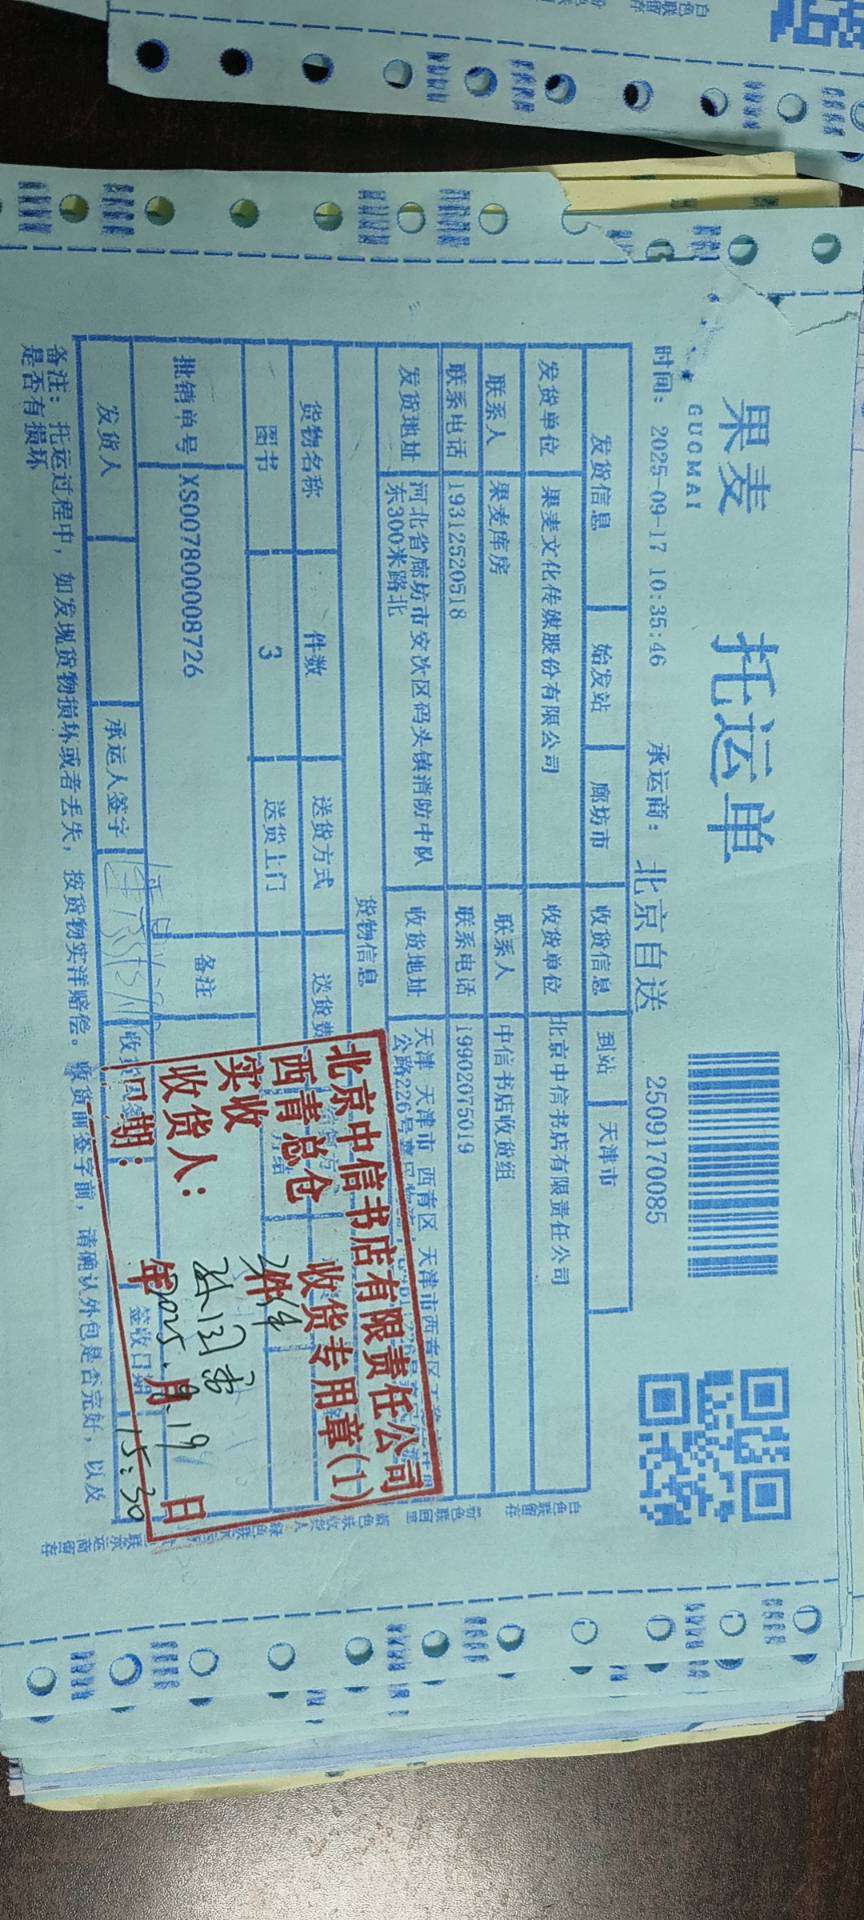 果麦
GUOMAI
托运单
时间: 2025-09-17 10:35:46 承运商: 北京自送 2509170085
发货信息 始发站 廊坊市 收货信息 到站 天津市
发货单位 果麦文化传媒股份有限公司 收货单位 北京中信书店有限责任公司
联系人 果麦库房 联系人 中信书店收货组
联系电话 19312520518 联系电话 19902075019
发货地址 河北省廊坊市安次区码头镇消防中队
东300米路北
收货地址 天津 天津市 西青区 天津市西青区
公路226号
货物信息
货物名称 件数 送货方式 送货费
图书 3 送货上门
批销单号 XS007800008726 备注
发货人 承运人签字 签收日期
备注: 托运过程中, 如发现货物损坏或者丢失, 按货物实洋赔偿。收货前签字前, 请确认外包是否完好, 以及
是否有损坏
北京中信书店有限责任公司
西青总仓 收货专用章(1)
实收 3件
收货人:
日期: 2025年9月19日
15:30